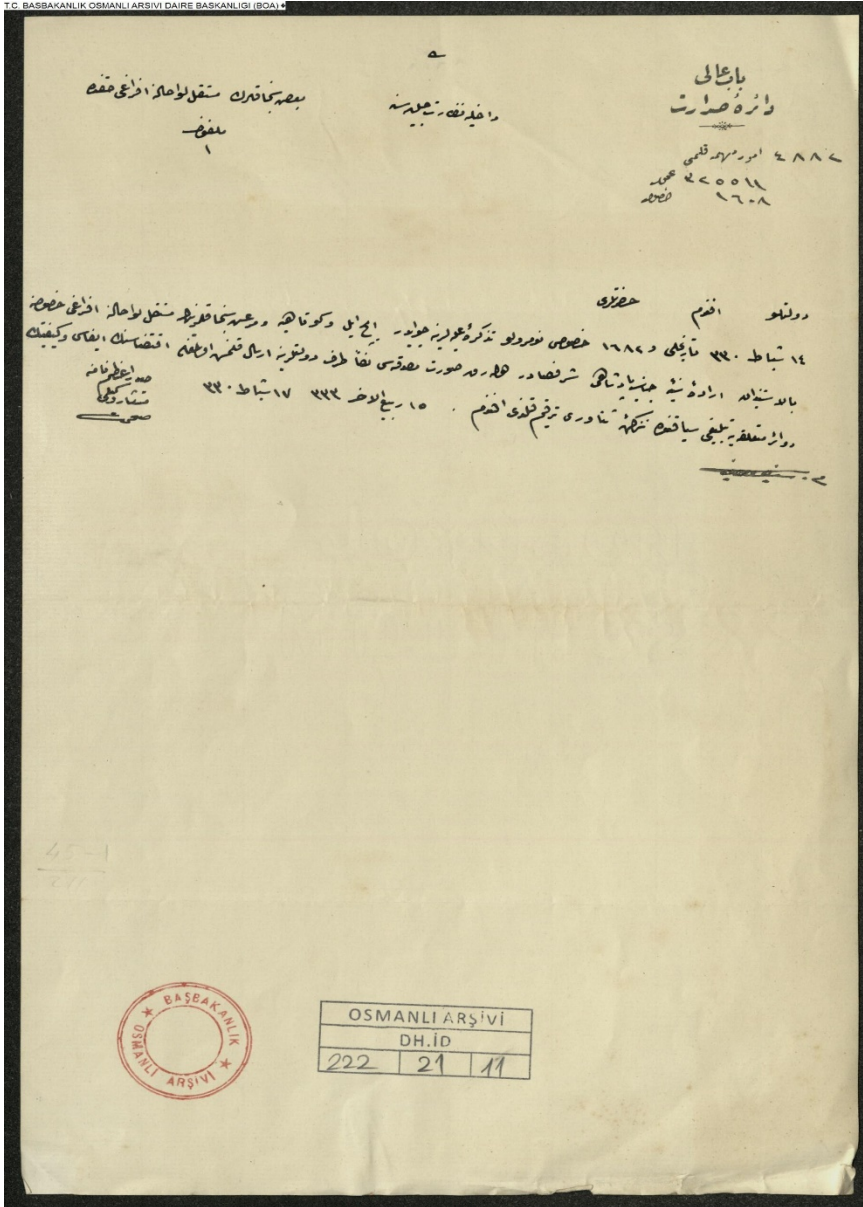 T.C. BASBAKANLIK OSMANLI ARSIVI DAIRE BASKANLIGI (BOA)
باب عالی
دائرهٔ صدارت
امور مهمه قلمی
٤٨٨٢
عمومی ٣٢٥٥١١
خصوصی ١٦٠٨
داخلیه نظارت جلیله سنه
بعض سنجاقلرك مستقل لوا حالنه افراغی حقنده
ملفوف
١
دولتلو افندم حضرتلری
١٤ شباط ٣٣٠ تاریخلی و ١٦٨٢ خصوصی نومرولو تذکرهٔ علیه لرینه جوابدر ایچ ایل و کوتاهیه و مرعش سنجاقلرینك مستقل لوا حالنه افراغی خصوصنه
بالاستیذان ارادهٔ سنیهٔ جناب پادشاهی شرفصادر اوله رق صورت مصدقه سی لفا طرف دولتلرینه ارسال قلنمش اولمغله اقتضاسنك ایفاسی و کیفیتك
دوائر متعلقه یه تبلیغی سیاقنده تذکرهٔ ثناوری ترقیم قلندی افندم ١٥ ربیع الاخر ٣٣٣ ١٧ شباط ٣٣٠
صدر اعظم نامنه
مستشار
OSMANLI ARŞİVİ
DH.İD
222 21 11
BAŞBAKANLIK OSMANLI ARŞİVİ